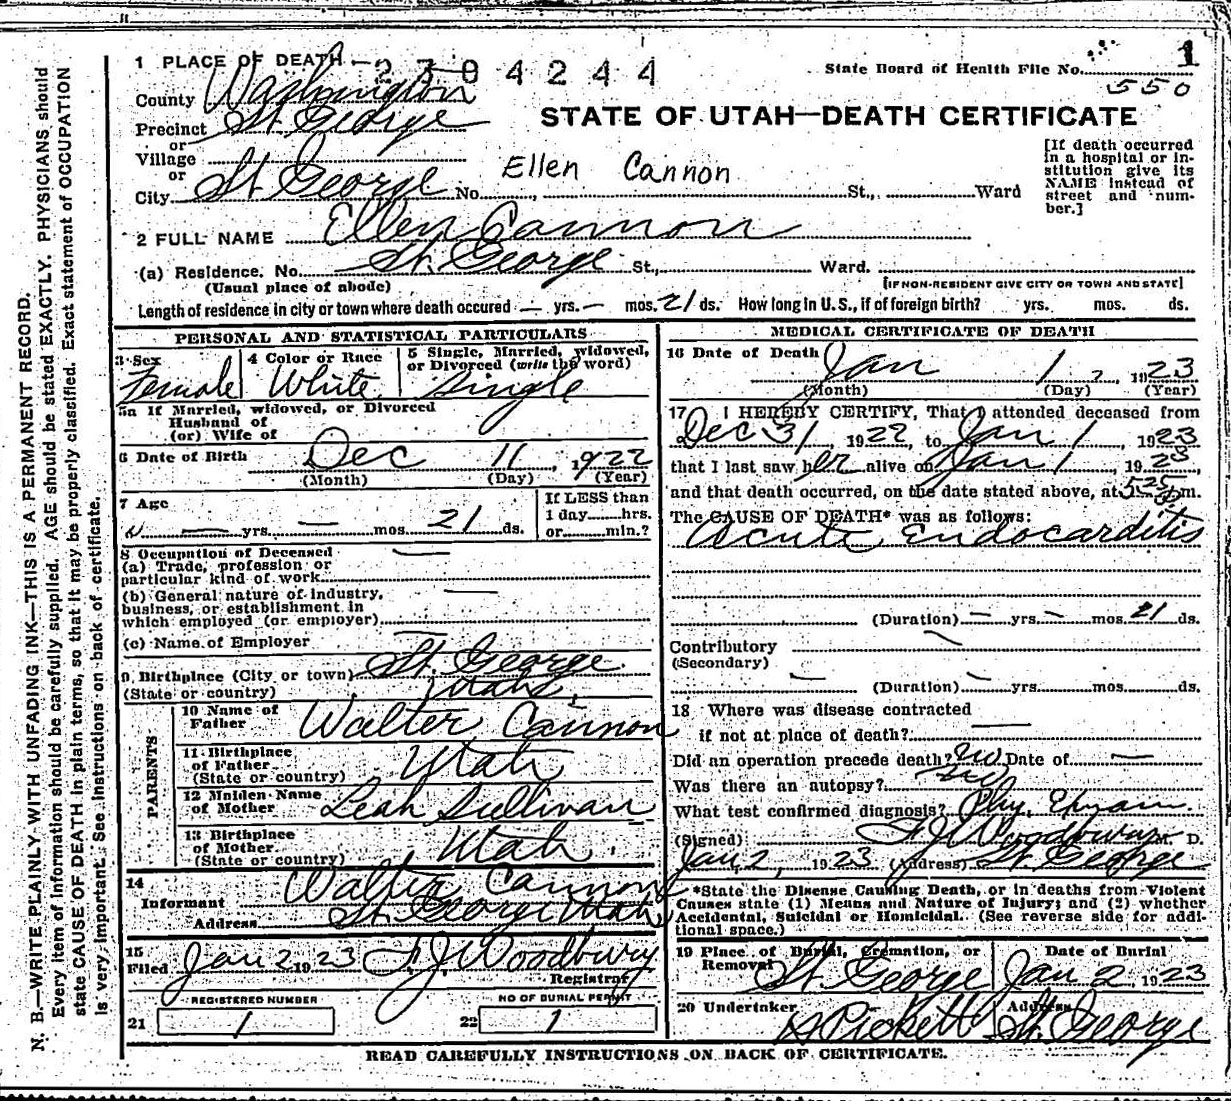 1 PLACE OF DEATH
2304244
State Board of Health File No.
1
550
County Washington
Precinct St. George
or
Village
or
City St. George No. St., Ward
Ellen Cannon
STATE OF UTAH—DEATH CERTIFICATE
[If death occurred
in a hospital or in-
stitution give its
NAME instead of
street and num-
ber.]
2 FULL NAME Ellen Cannon
(a) Residence. No. St. George St., Ward.
(Usual place of abode)
[IF NON-RESIDENT GIVE CITY OR TOWN AND STATE]
Length of residence in city or town where death occured — yrs. — mos. 21 ds. How long in U.S., if of foreign birth? yrs. mos. ds.
PERSONAL AND STATISTICAL PARTICULARS
3 Sex
Female
4 Color or Race
White
5 Single, Married, widowed,
or Divorced (write the word)
Single
5a If Married, widowed, or Divorced
Husband of
(or) Wife of
6 Date of Birth Dec 11, 1922
(Month) (Day) (Year)
7 Age
— yrs. — mos. 21 ds.
If LESS than
1 day hrs.
or min.?
8 Occupation of Deceased —
(a) Trade, profession or
particular kind of work
(b) General nature of industry, —
business, or establishment in
which employed (or employer)
(c) Name of Employer —
9 Birthplace (City or town) St. George
(State or country) Utah
PARENTS
10 Name of
Father Walter Cannon
11 Birthplace
of Father
(State or country) Utah
12 Maiden Name
of Mother Leah Sullivan
13 Birthplace
of Mother
(State or country) Utah
14
Informant Walter Cannon
Address St. George Utah
15
Filed Jan 2 1923 F. J. Woodbury
Registrar
REGISTERED NUMBER
21 1
NO OF BURIAL PERMIT
22 1
MEDICAL CERTIFICATE OF DEATH
16 Date of Death Jan 1, 1923
(Month) (Day) (Year)
17 I HEREBY CERTIFY, That I attended deceased from
Dec 31, 1922, to Jan 1 1923
that I last saw her alive on Jan 1, 1923,
and that death occurred, on the date stated above, at 525 m.
The CAUSE OF DEATH* was as follows:
Acute Endocarditis
(Duration) — yrs. — mos. 21 ds.
Contributory —
(Secondary)
— (Duration) — yrs. mos. ds.
18 Where was disease contracted
if not at place of death? —
Did an operation precede death? No Date of —
Was there an autopsy? No
What test confirmed diagnosis? Phy. Exam
(Signed) F J Woodbury M. D.
Jan 2, 1923 (Address) St. George
*State the Disease Causing Death, or in deaths from Violent
Causes state (1) Means and Nature of Injury; and (2) whether
Accidental, Suicidal or Homicidal. (See reverse side for addi-
tional space.)
19 Place of Burial, Cremation, or
Removal St. George
Date of Burial
Jan 2, 1923
20 Undertaker Pickett
Address St. George
READ CAREFULLY INSTRUCTIONS ON BACK OF CERTIFICATE.
N. B.—WRITE PLAINLY WITH UNFADING INK—THIS IS A PERMANENT RECORD.
Every item of information should be carefully supplied. AGE should be stated EXACTLY. PHYSICIANS should
state CAUSE OF DEATH in plain terms, so that it may be properly classified. Exact statement of OCCUPATION
is very important. See instructions on back of certificate.